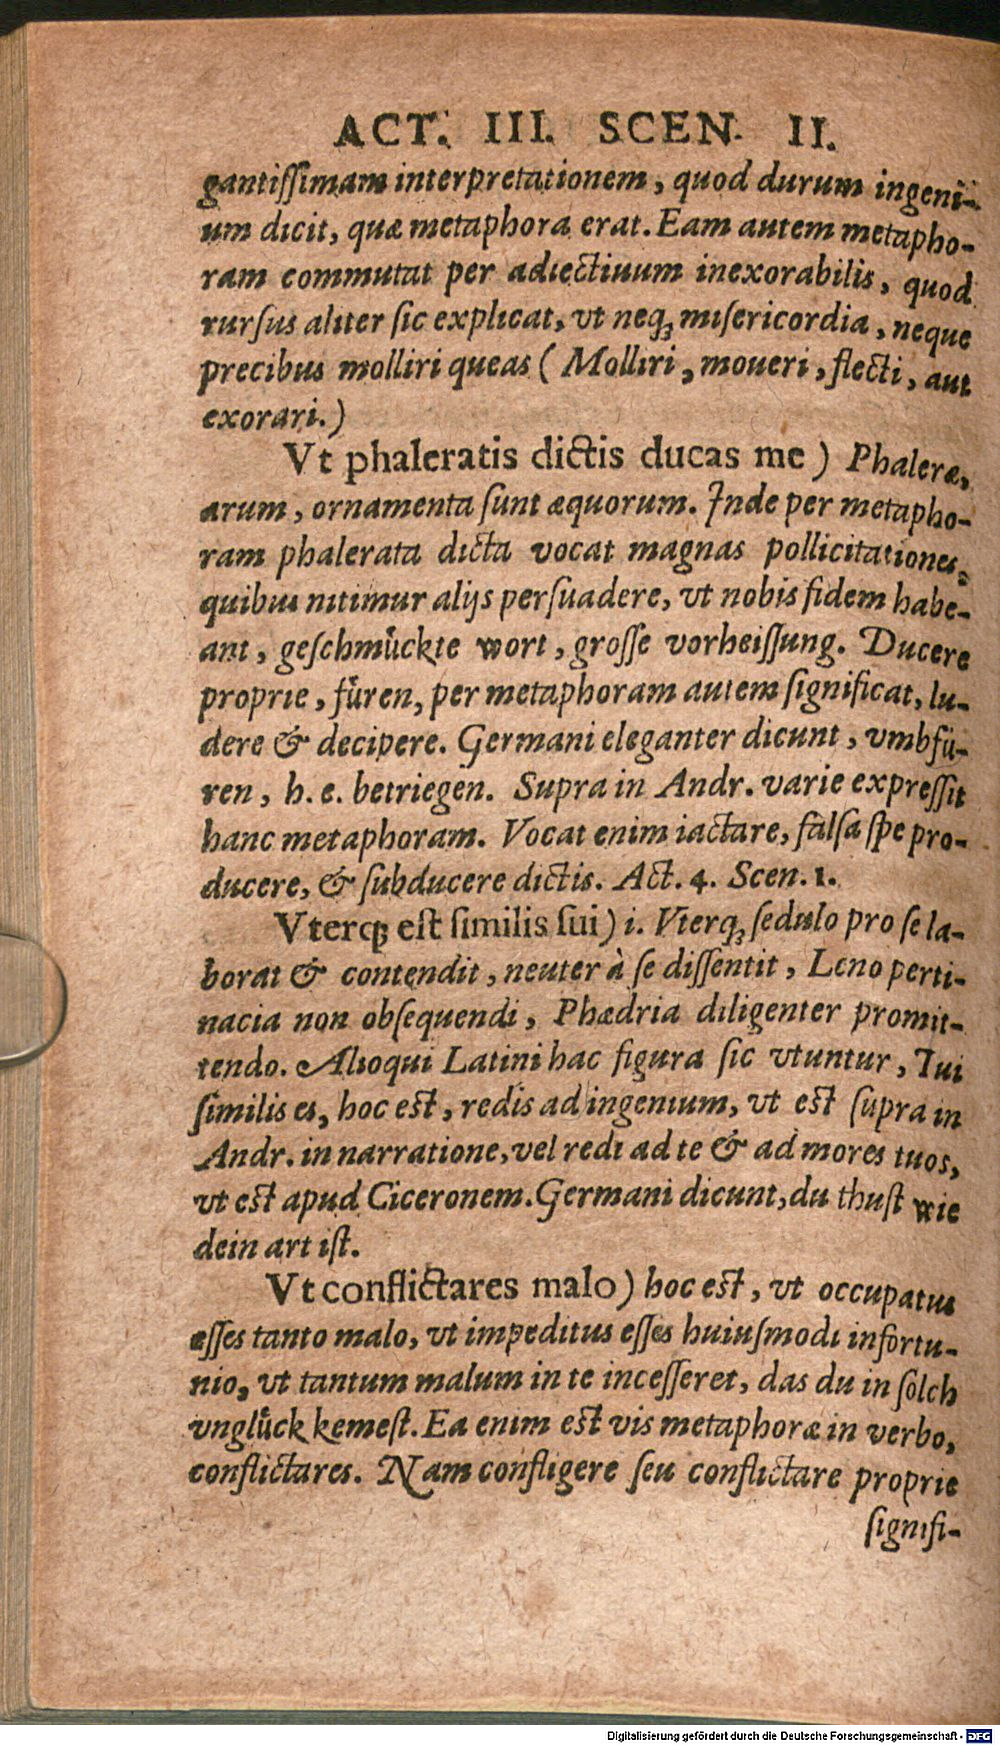 ACT. III. SCEN. II.
gantiſſimam interpretationem, quod durum ingeni-
um dicit, quæ metaphora erat. Eam autem metapho-
ram commutat per adiectiuum inexorabilis, quod
rurſus aliter ſic explicat, vt neqꝫ miſericordia, neque
precibus molliri queas ( Molliri, moueri, flecti, aut
exorari.)
Vt phaleratis dictis ducas me ) Phaleræ,
arum, ornamenta ſunt æquorum. Inde per metapho-
ram phalerata dicta vocat magnas pollicitationes,
quibus nitimur alijs perſuadere, vt nobis fidem habe-
ant, geſchmuͤckte wort, groſſe vorheiſſung. Ducere
proprie, fuͤren, per metaphoram autem ſignificat, lu-
dere & decipere. Germani eleganter dicunt, vmbfuͤ-
ren, h. e. betriegen. Supra in Andr. varie expreſſit
hanc metaphoram. Vocat enim iactare, falſa ſpe pro-
ducere, & ſubducere dictis. Act. 4. Scen. 1.
Vterqꝫ eſt ſimilis ſui) i. Vterqꝫ ſedulo pro ſe la-
borat & contendit, neuter à ſe diſſentit, Leno perti-
nacia non obſequendi, Phædria diligenter promit-
tendo. Alioqui Latini hac figura ſic vtuntur, Tui
ſimilis es, hoc eſt, redis ad ingenium, vt eſt ſupra in
Andr. in narratione, vel redi ad te & ad mores tuos,
vt eſt apud Ciceronem. Germani dicunt, du thuſt wie
dein art iſt.
Vt conflictares malo) hoc eſt, vt occupatus
eſſes tanto malo, vt impeditus eſſes huiuſmodi infortu-
nio, vt tantum malum in te inceſſeret, das du in ſolch
vngluͤck kemeſt. Ea enim eſt vis metaphoræ in verbo,
conflictares. Nam confligere ſeu conflictare proprie
ſignifi-
Digitalisierung gefördert durch die Deutsche Forschungsgemeinschaft - DFG